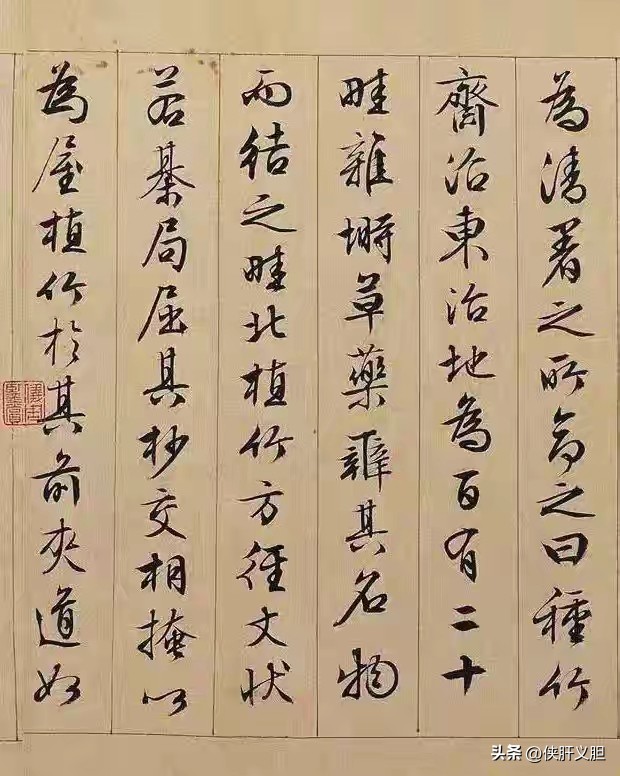 為清暑之所命之曰種竹
齋沼東治地為百有二十
畦雜塒草藥辨其名物
而結之畦北植竹方徑丈狀
若棊局屈其杪交相掩以
為屋植竹於其前夾道如
头条 @侠肝义胆